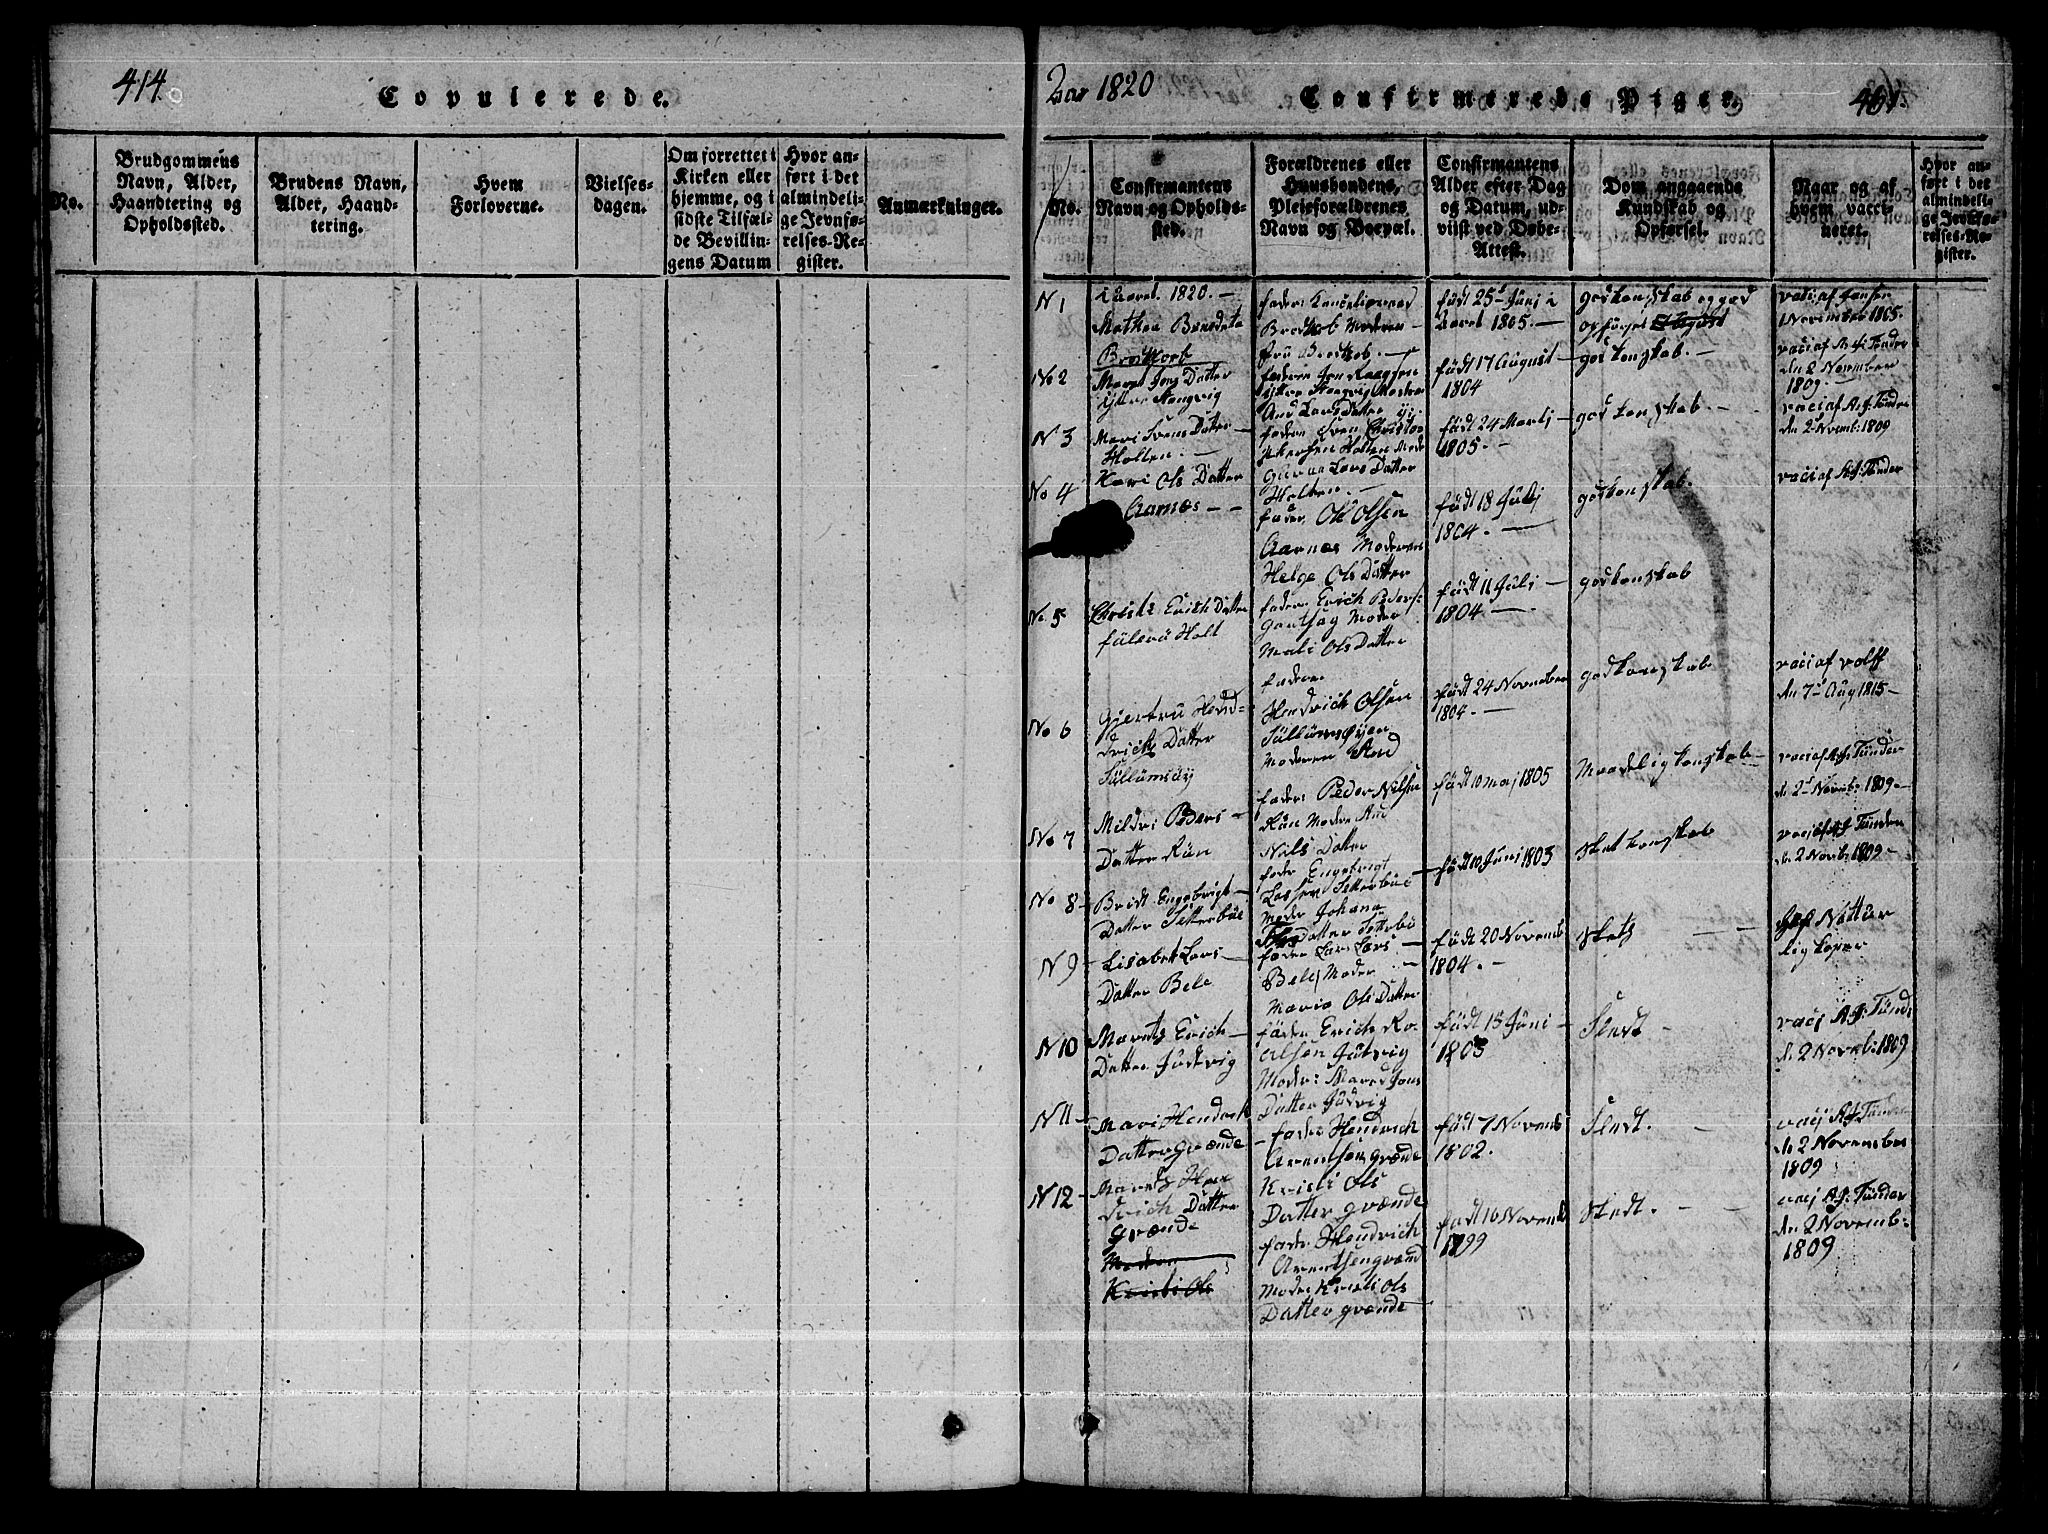 414.
Copulerede.
No.
Brudgommens
Navn, Alder,
Haandtering og
Opholdssted.
Brudens Navn,
Alder, Haand-
tering.
Hvem
Forloverne.
Vielses-
dagen.
Om forrettet i
Kirken eller
hjemme, og i
sidste Tilfæl-
de Bevillin-
gens Datum
Hvor an-
ført i det
almindeli-
ge Jevnfø-
relses-Re-
gister.
Anmærkninger.
Aar 1820
Confirmerede Piger.
No.
Confirmantens
Navn og Opholds-
sted.
Forældrenes eller
Huusbondens,
Plejeforældrenes
Navn og Boepæl.
Confirmantens
Alder efter Dag
og Datum, ud-
viist ved Døbe-
Attest.
Dom angaaende
Kundskab og
Opførsel.
Naar og af
hvem vacci-
neret.
Hvor an-
ført i det
almindelig
ge Jevnfø-
relses-Re-
gister.
N 1
i Aaret 1820. —
Mathea Benedete
Brodtkorb
Moderen
Fru
født 25 Juni i
Aaret 1805. —
god konskab og god
opførsel
vaci af Jensen
November 1805.
No 2
Maret Jons Datter
Ytter Stengvig
fader Jon
født 17 August
1804
god konskab. —
vaci af A. f. Tünder
den 2 November
1809. —
N 3
Mari Svens Datter —
Holten. —
And Lars Datter
fader Sven Christo
Holten Mode
født 24 Martj
1805. —
god konskab. —
vaci af A. f. Tünder
den 2 Novemb: 1809
No 4
Kari Ols Datter
Aarnes — —
Lars Datter
Holten. —
fader Ole Olsen
Aarnes Moderen
Helge Ols Datter
født 18 Julj
1804. —
god konskab.
vaci af A. f. Tünder
No. 5
Erich Datter
Holt
fader Erich Peders:
Moder
Mali Ols Datter
født 11 Juli —
1804 —
god konskab
No 6
Gjertru Hend-
drichs Datter
Süllümsøy
fader
Hendrich Olsen
Süllümsøyen
Moderen And
født 24 November
1804. —
god konskab
vaci af Wolff
den 7 Aug 1815 —
No 7
Mildri Peders —
Datter Rün
fader Peder Nilsen
Rün Moder And
Nils Datter
født 10 Maj 1805
Maadelig konskab —
vaci af A. f. Tünder
d. 2 Novemb: 1809 —
No 8 —
Bridt Engebrigt —
Datter Setterbøe
fader Engebrigt
Setterbøe
Moder Johana
Datter Setterbø
født 10 Juni 1803
slet konskab
vaci af A. f. Tünder
d. 2 Novb: 1809 —
N 9
Lisabet Lars —
Datter Bele
fader Lars Lars —
Bele Moder —
Maria Ols Datter
født 20 Novemb
1804. —
slets — —
Nattur
lig koper
N 10
Marets Erich —
Datter Jüdtvig
fader Erich Ro-
alsen Jütvig
Moder: Mared Jons
Datter Jüdvig
født 15 Juni —
1803
Sledt —
vaci A. f: Tünd
d. 2 Novemb: 1809
N 11 —
Mari Hendrik
Datter Grønde
fader Hendrich
Arentsen Grønde
Kristi Ols
Datter Grønde
født 7 Novemb
1802.
Sledt. —
vaci A. f. Tünder
d. 2 November
1809
N 12 —
Marets Hen
drich Datter
Grønde
Moderen
Kristi Ols
fader Hendrich
Arentsen Grønd
Moder Kristi Ols
Datter Grønde
født 16 Novemb
1799
Sledt. — —
vaci A. f: Tünder
den 2 Novemb:
1809